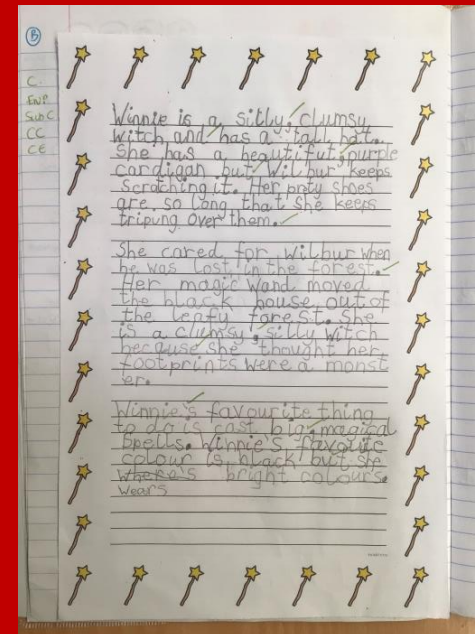 B
C.
EnP
SubC
CC
CE
Winnie is a silly, clumsy
witch and has a tall hat.
She has a beautiful, purple
cardigan but Wilbur keeps
scratching it. Her pnty shoes
are so long that she keeps
triping over them.
She cared for Wilbur when
he was lost in the forest.
Her magic wand moved
the black house out of
the leafy forest. She
is a clumsy, silly witch
because she thought her
footprints were a monst
er.
Winnie's favourite thing
to do is cast big, magical
spells. Winnie's favourite
colour is black but she
where's bright colours.
wears